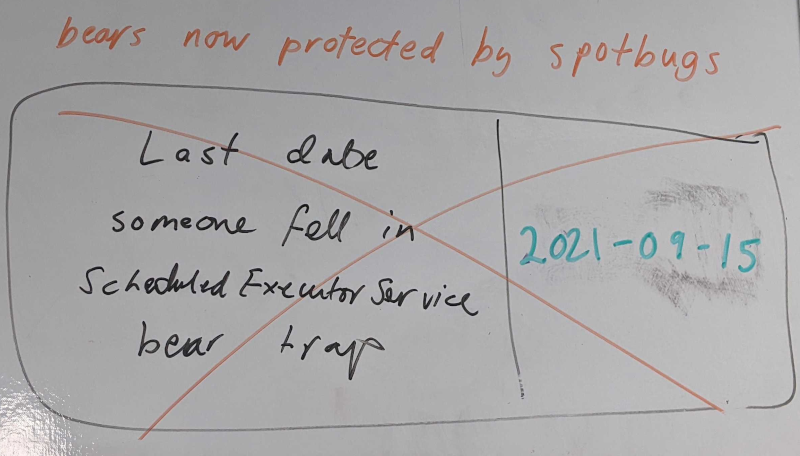 bears now protected by spotbugs
Last date
someone fell in
ScheduledExecutorService
bear trap
2021-09-15